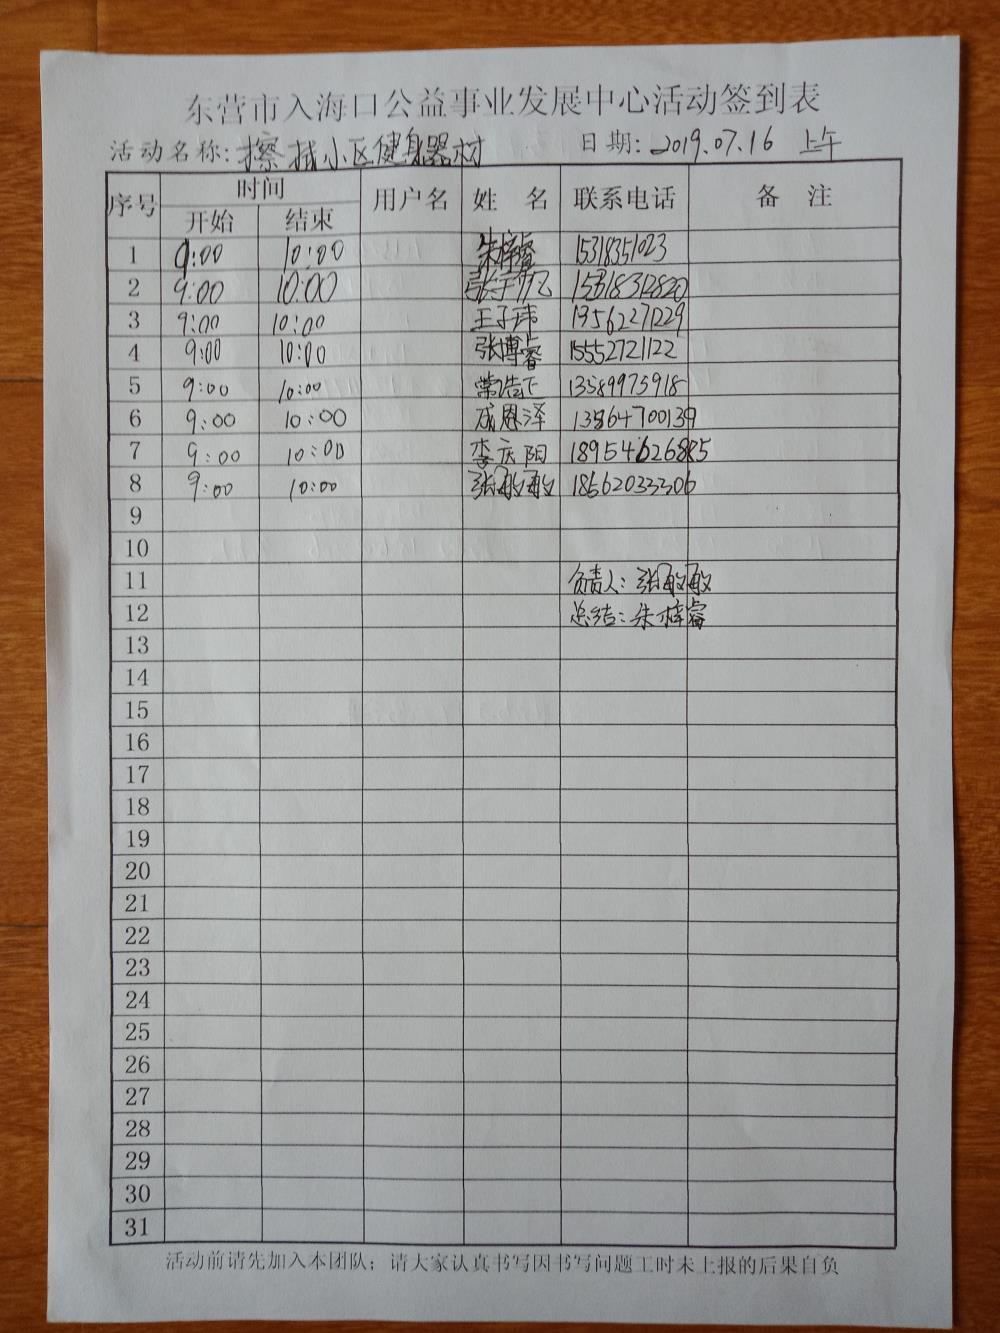 东营市入海口公益事业发展中心活动签到表
活动名称:擦拭小区健身器材 日期:2019.07.16 上午
序号 时间 用户名 姓 名 联系电话 备 注
开始 结束
1 9:00 10:00 朱梓睿 15318351023
2 9:00 10:00 张宇 15318312820
3 9:00 10:00 王子玮 13562271229
4 9:00 10:00 张博睿 15552721122
5 9:00 10:00 常浩正 13589975918
6 9:00 10:00 成恩泽 13864700139
7 9:00 10:00 李庆阳 18954626885
8 9:00 10:00 张敏敏 18562033306
9
10
11 负责人:张敏敏
12 总结:朱梓睿
13
14
15
16
17
18
19
20
21
22
23
24
25
26
27
28
29
30
31
活动前请先加入本团队;请大家认真书写因书写问题工时未上报的后果自负